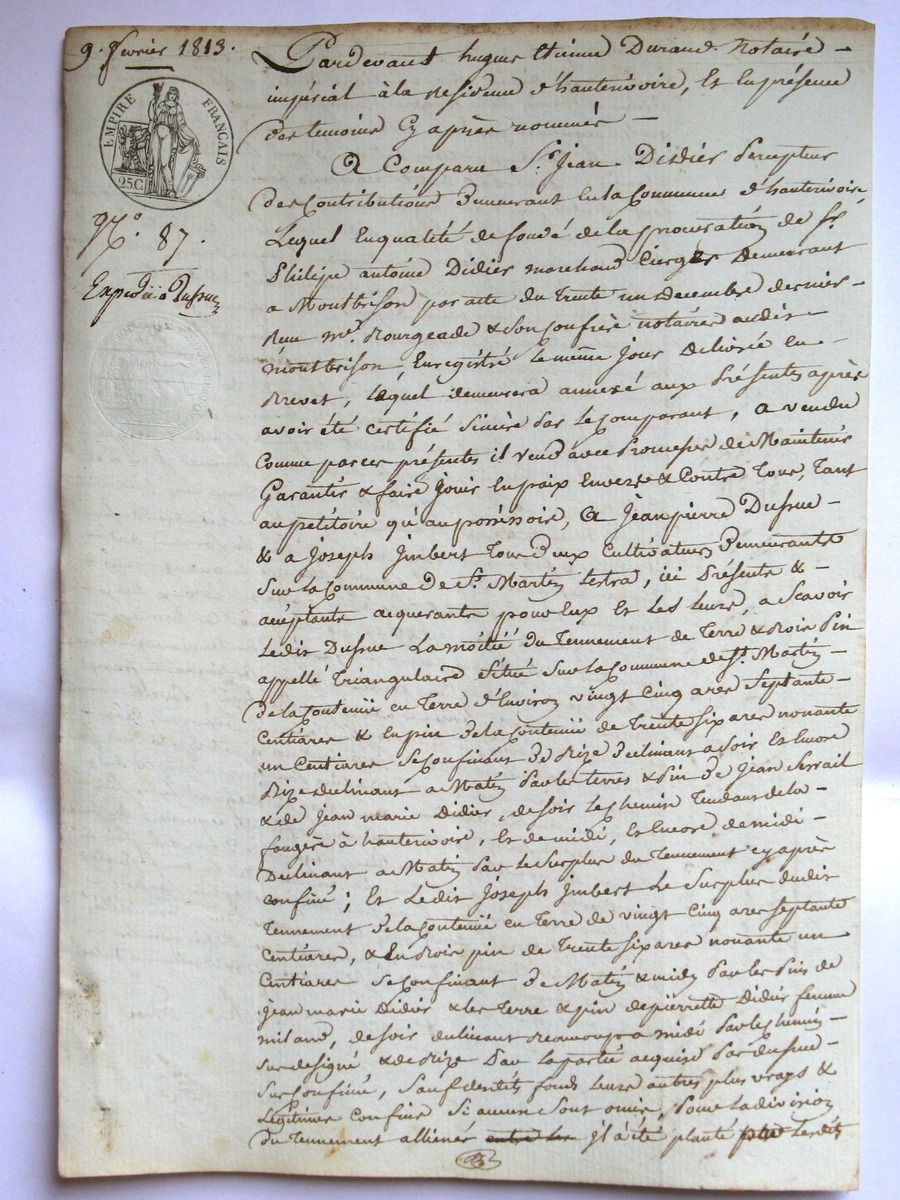 9. fevrier 1813.
EMPIRE FRANÇAIS
25C.
N.° 87.
Expedié à Dufrue
Pardevant hugues Etienne Durand Notaire
impérial à la residence d'hauterivoire, Et En présence
des temoins Cy après nommés
A Comparu S.r Jean Didier Percepteur
des Contributions Demeurant En la Commune d'hauterivoire,
Lequel En qualité de fondé de la procuration de Sr.
Philipe antoine Didier marchand Cierger Demeurant
a Montbrison par acte du trente un Decembre dernier
Reçu me. Bourgeade & Son Confrère notaires audit
montbrison, Enregistré le même jour Delivrée en
Brevet, lequel demeurera annexé aux Présentes après
avoir été certifié Sincère par le Comparant, a vendu
Comme par ces présentes il vend avec Promesse de Maintenir
Garantir & faire Jouir En paix Envers & Contre Tous, Tant
au petitoire qu'au possessoire, A Jean pierre Dufrue
& a Joseph Jmbert Tous Deux Cultivateurs Demeurants
Sur la Commune De St. Martin Lestra, ici Présents &
acceptants acquerants pour Eux Et Les Leurs, a Scavoir
Ledit Dufrue La moitié du Tennement de Terre & Bois Pin
appellé Triangulaire Situé Sur la Commune de St. Martin
de la Contenue en Terre d'Environ vingt Cinq ares Septante
Centiares & En pin De la Contenue de Trente Six ares nonante
un Centiares Se Confinant De Bize Declinant a Soir Et Encore
Bize declinant a Matin Par les terres & Pin De Jean Serrail
& de Jean marie Didier, de Soir Le Chemin Tendant de la
fougere à hauterivoire, Et de midi, Et Encore de midi
Declinant a Matin Par le Surplus du Tennement cy après
confiné; Et Ledit Joseph Jmbert Le Surplus dudit
Tennement De la Contenue en Terre de vingt Cinq ares Septante
Centiares, & En Bois pin de Trente Six ares nonante un
Centiares Se Confinant De Matin & midi Par les Pins de
Jean marie Didier & les Terre & pin de pierrette Didier femme
miland, de Soir declinant Beaucoup a midi Par le Chemin
Sus designé & de Bize Par la partie acquise Par Dufrue
Sus Confiné, Sauf desdits fonds Leurs autres plus vrays &
Légitimes Confins Si aucun Sont omis, Pour la division
du Tennement alliené entre les Jl a été planté Lesdits